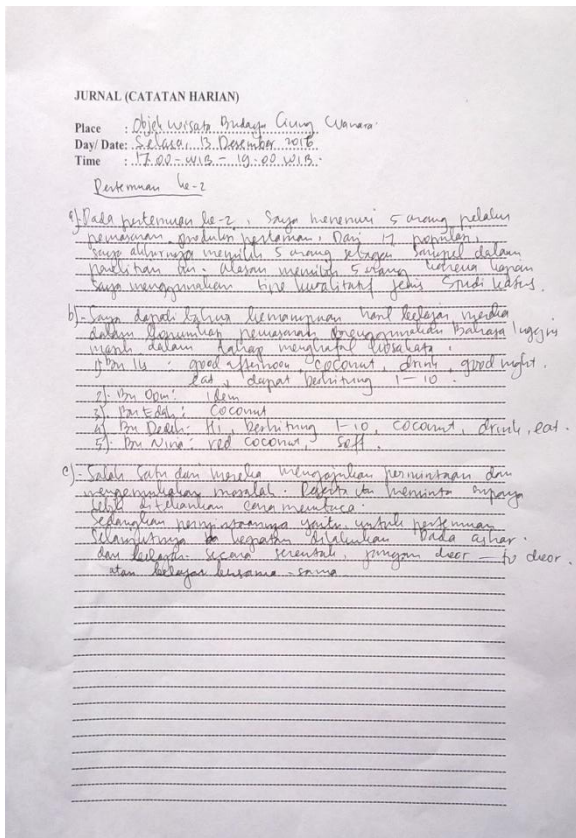 JURNAL (CATATAN HARIAN)
Place : Objek wisata Budaya Ciung Wanara
Day/ Date: Selasa, 13 Desember 2016
Time : 17.00 - WIB - 19.00 WIB.
Pertemuan ke-2
a). Pada pertemuan ke-2, Saya menemui 5 orang pelaku
pemasaran produk pertanian. Dari 17 populasi,
saya akhirnya memilih 5 orang sebagai sampel dalam
penelitian ini. alasan memilih 5 orang karena
Saya menggunakan tipe kualitatif jenis Studi kasus.
b). Saya dapati bahwa kemampuan hasil belajar mereka
dalam pemasaran menggunakan Bahasa Inggris
masih dalam tahap menghafal kosakata.
1). Bu Iis : good afternoon, coconut, drink, good night.
eat, dapat berhitung 1-10.
2). Bu Opon: idem
3). Bu Edah: coconut
4). Bu Dedeh: Hi, berhitung 1-10, coconut, drink, eat.
5). Bu Nina: red coconut, soft.
c). Salah Satu dari mereka mengajukan permintaan dan
mengemukakan masalah. Peserta itu meminta supaya
lebih ditekankan cara membaca.
Sedangkan permintaannya yaitu untuk pertemuan
Selanjutnya kegiatan dilakukan pada ashar.
dan belajar secara serentak, jangan door - to door.
atau belajar bersama-sama